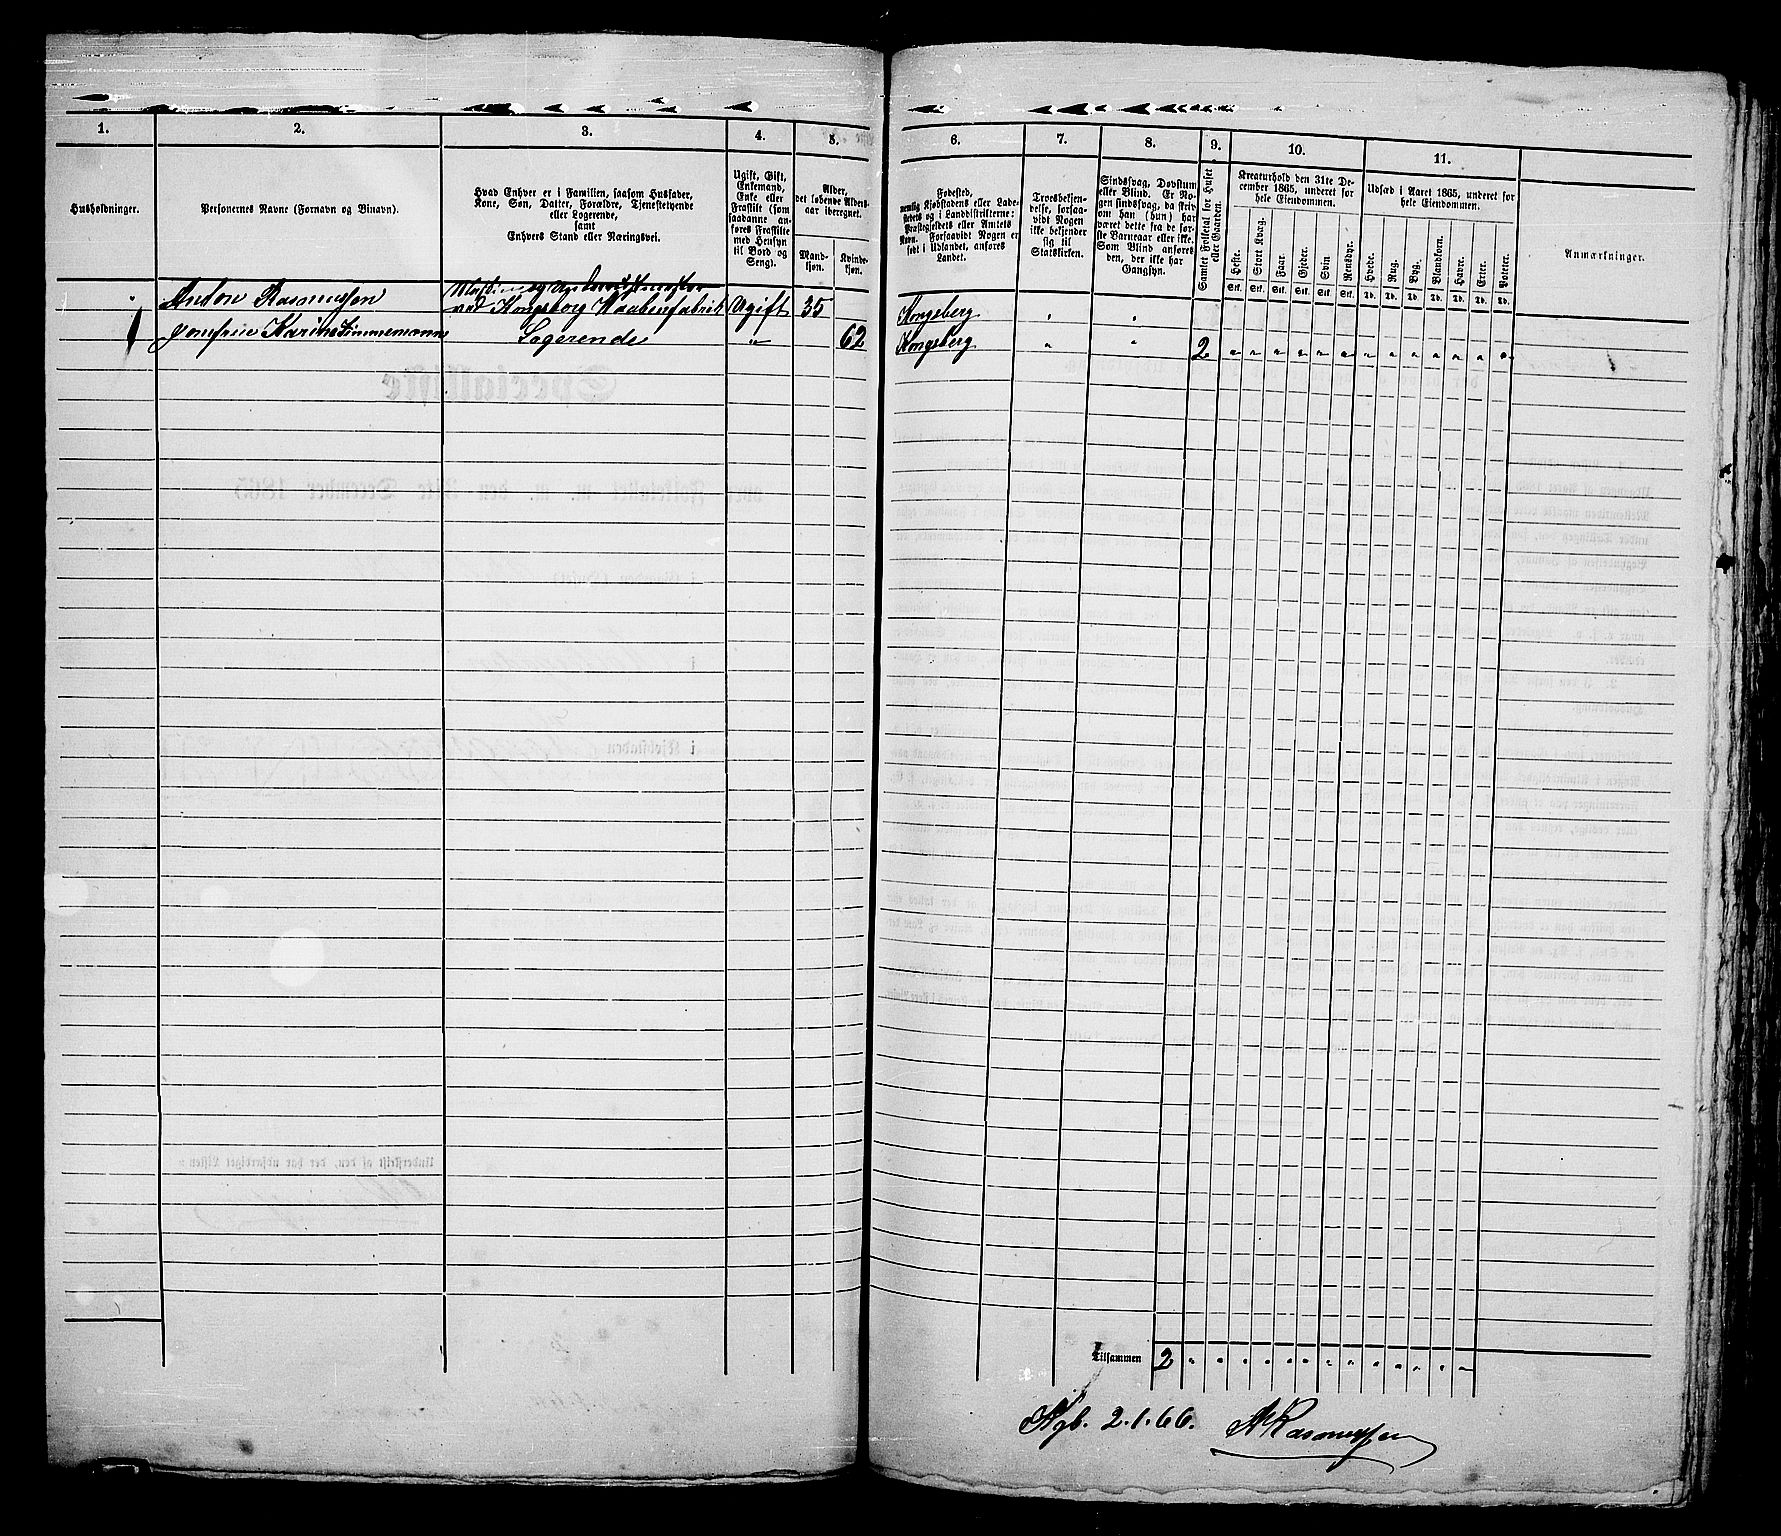 1.
2.
3.
4.
5.
6.
7.
8.
9.
10.
11.
Husholdninger.
Personernes Navne (Fornavn og Binavn).
Hvad Enhver er i Familien, saasom Husfader,
Kone, Søn, Datter, Forældre, Tjenestetyende
eller Logerende,
samt
Enhvers Stand eller Næringsvei.
Ugift, Gift,
Enkemand,
Enke eller
Fraskilt (som
saadanne an-
føres Fraskilte
med Hensyn
til Bord og
Seng).
Alder,
det løbende Alders-
aar iberegnet.
Mand-
kjøn.
Kvinde-
kjøn.
Fødested,
nemlig Kjøbstadens eller Lade-
stedets og i Landdistrikterne:
Præstegjeldets eller Amtets
Navn. Forsaavidt Nogen er
født i Udlandet, anføres
Landet.
Troesbekjen-
delse, forsaa-
vidt Nogen
ikke bekjender
sig til
Statskirken.
Sindssvag, Døvstum
eller Blind. Er No-
gen sindssvag, da skriv
om han (hun) har
været dette fra de før-
ste Barneaar eller ikke.
Som Blind anføres
den, der ikke har
Gangsyn.
Samlet Folketal for Huset
eller Gaarden.
Kreaturhold den 31te De-
cember 1865, underet for
hele Eiendommen.
Heste.
Stort Kvæg.
Faar.
Gjeder.
Svin.
Rensdyr.
Stk. Stk. Stk. Stk. Stk. Stk.
Udsæd i Aaret 1865, underet for
hele Eiendommen.
Hvede.
Rug.
Byg.
Blandkorn.
Havre.
Erter.
Poteter.
Td. Td. Td. Td. Td. Td. Td.
Anmærkninger.
Anton Rasmussen
ved Kongsberg Vaabenfabrik Ugift 35 Kongsberg
Jomfrue Karine Simmemann Logerende " 62 Kongsberg " " 2 " " " " " " " " " " " " "
Tilsammen 2 " " " " " " " " " " " " "
Kgb. 2.1.66. A Rasmussen